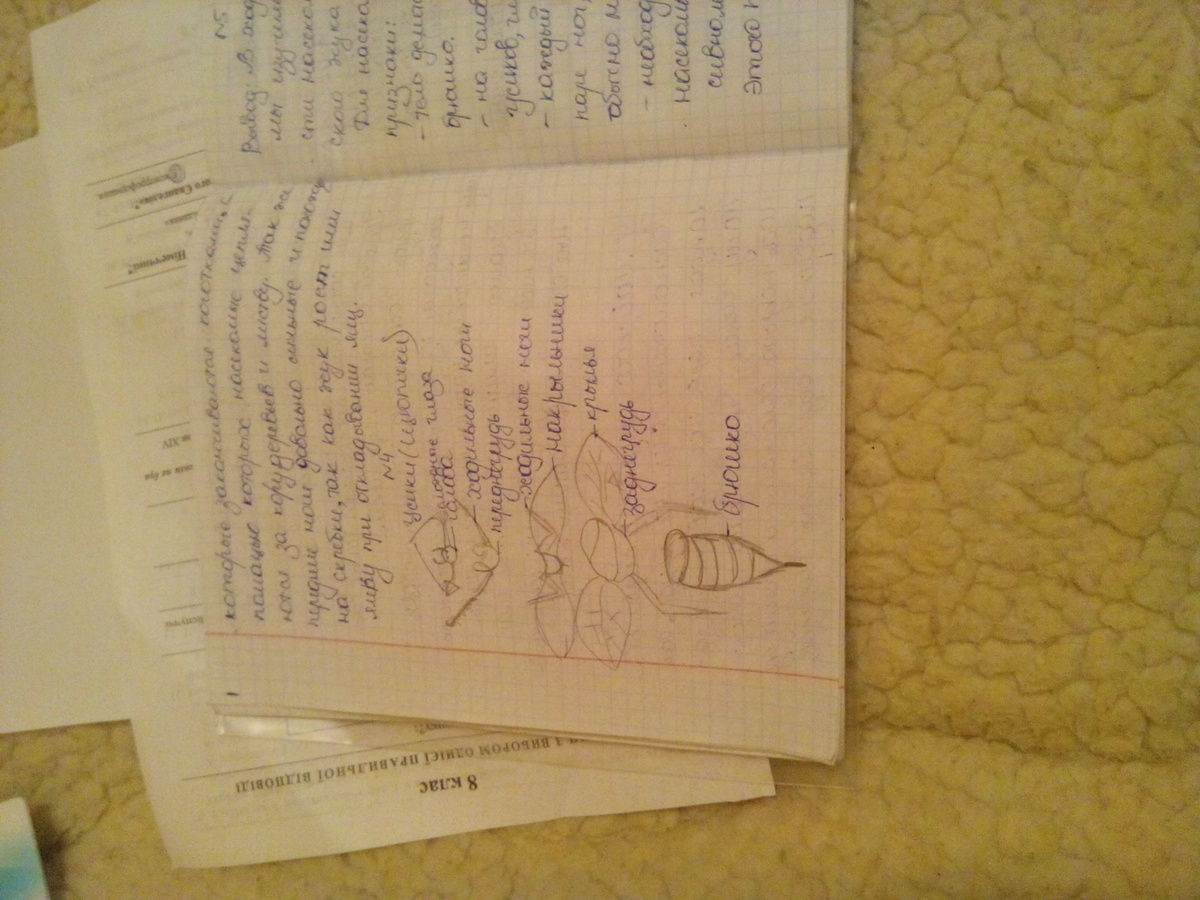 которые заканчиваются коготками, с
помощью которых насекомые цепля-
ются за кору деревьев и листву. Так же
передние ноги довольно сильные и похож
на скребки, так как жук роет ими
при откладывании яиц.
N4
усики (щупики)
глаза
голова
ходильные ноги
переднегрудь
ходильные ноги
накрыльники
крылья
заднегрудь
брюшко
N5
Вывод: В ход
мы изучил
сти насеком
ского жука
Для насеко
признаки:
- тело делит
брюшко.
- на голов
усиков, гл
- каждый
паре ног,
обычно м
- необход
насеком
этой н
8 клас
З ВИБОРОМ ОДНІЄЇ ПРАВИЛЬНОЇ ВІДПОВІДІ
Німеччині?